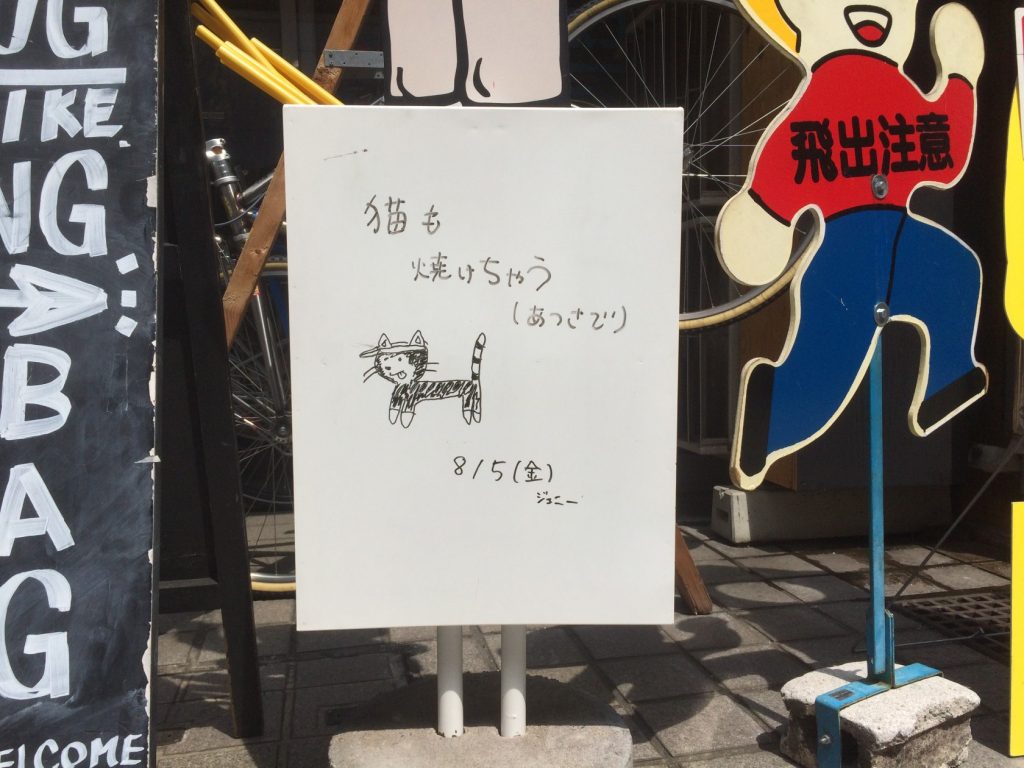 UG
IKE
NG
BAG
WELCOME
猫も
焼けちゃう
(あつさで!)
8/5(金)
ジョニー
飛出注意